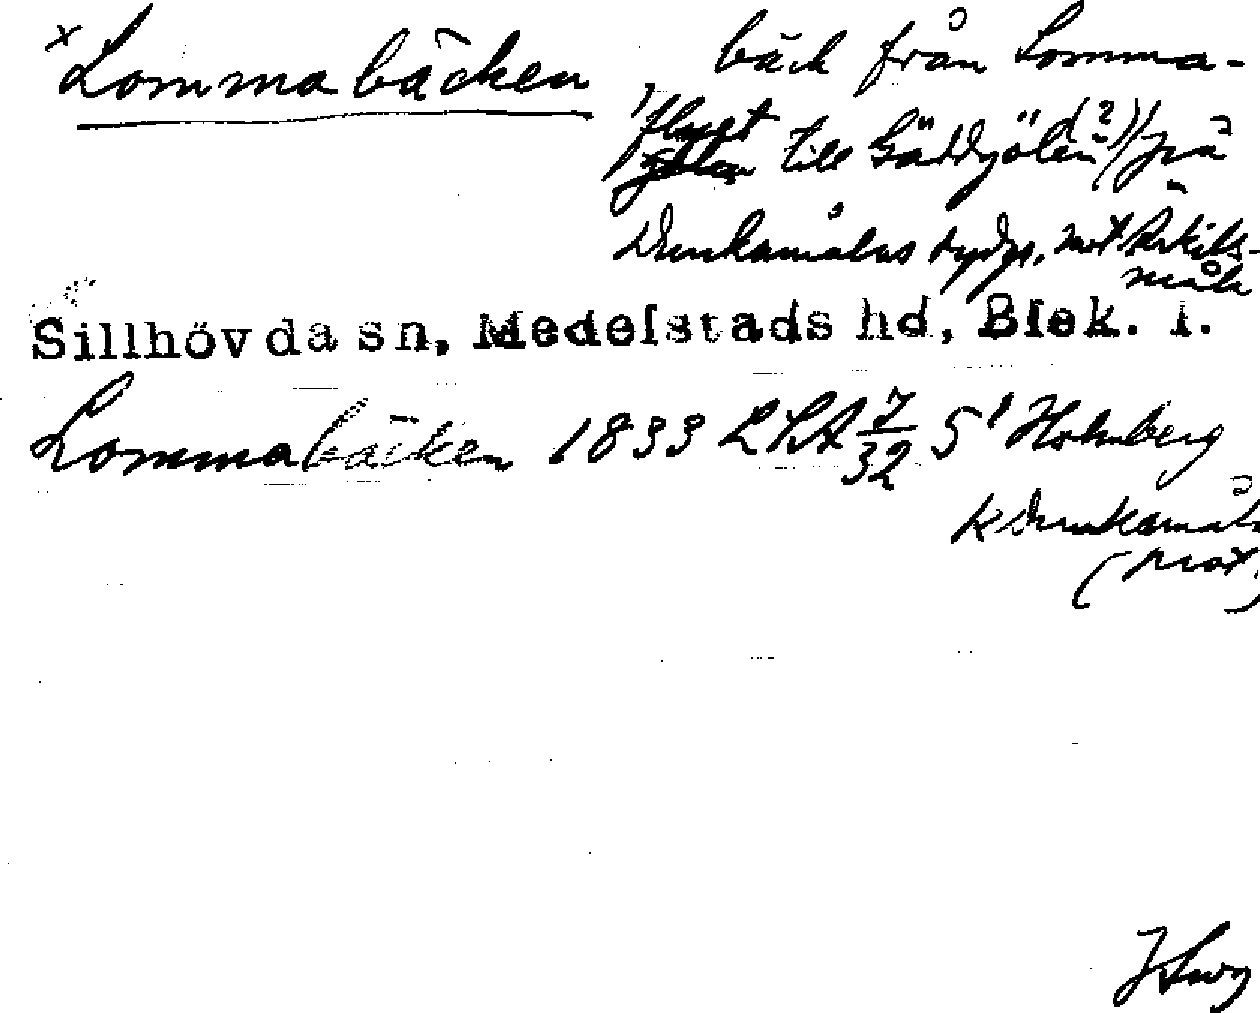 x Lommabäcken, bäck från Lomma-
flyet till Gäddgölen (?) på
Dunkamålas dygr. mot Eskils-
måla
Sillhövda sn, Medelstads hd, Blek. l.
Lommabäcken 1833 LSA 7/32 S¹ Holmberg
k Dunkamåla
(prot.)